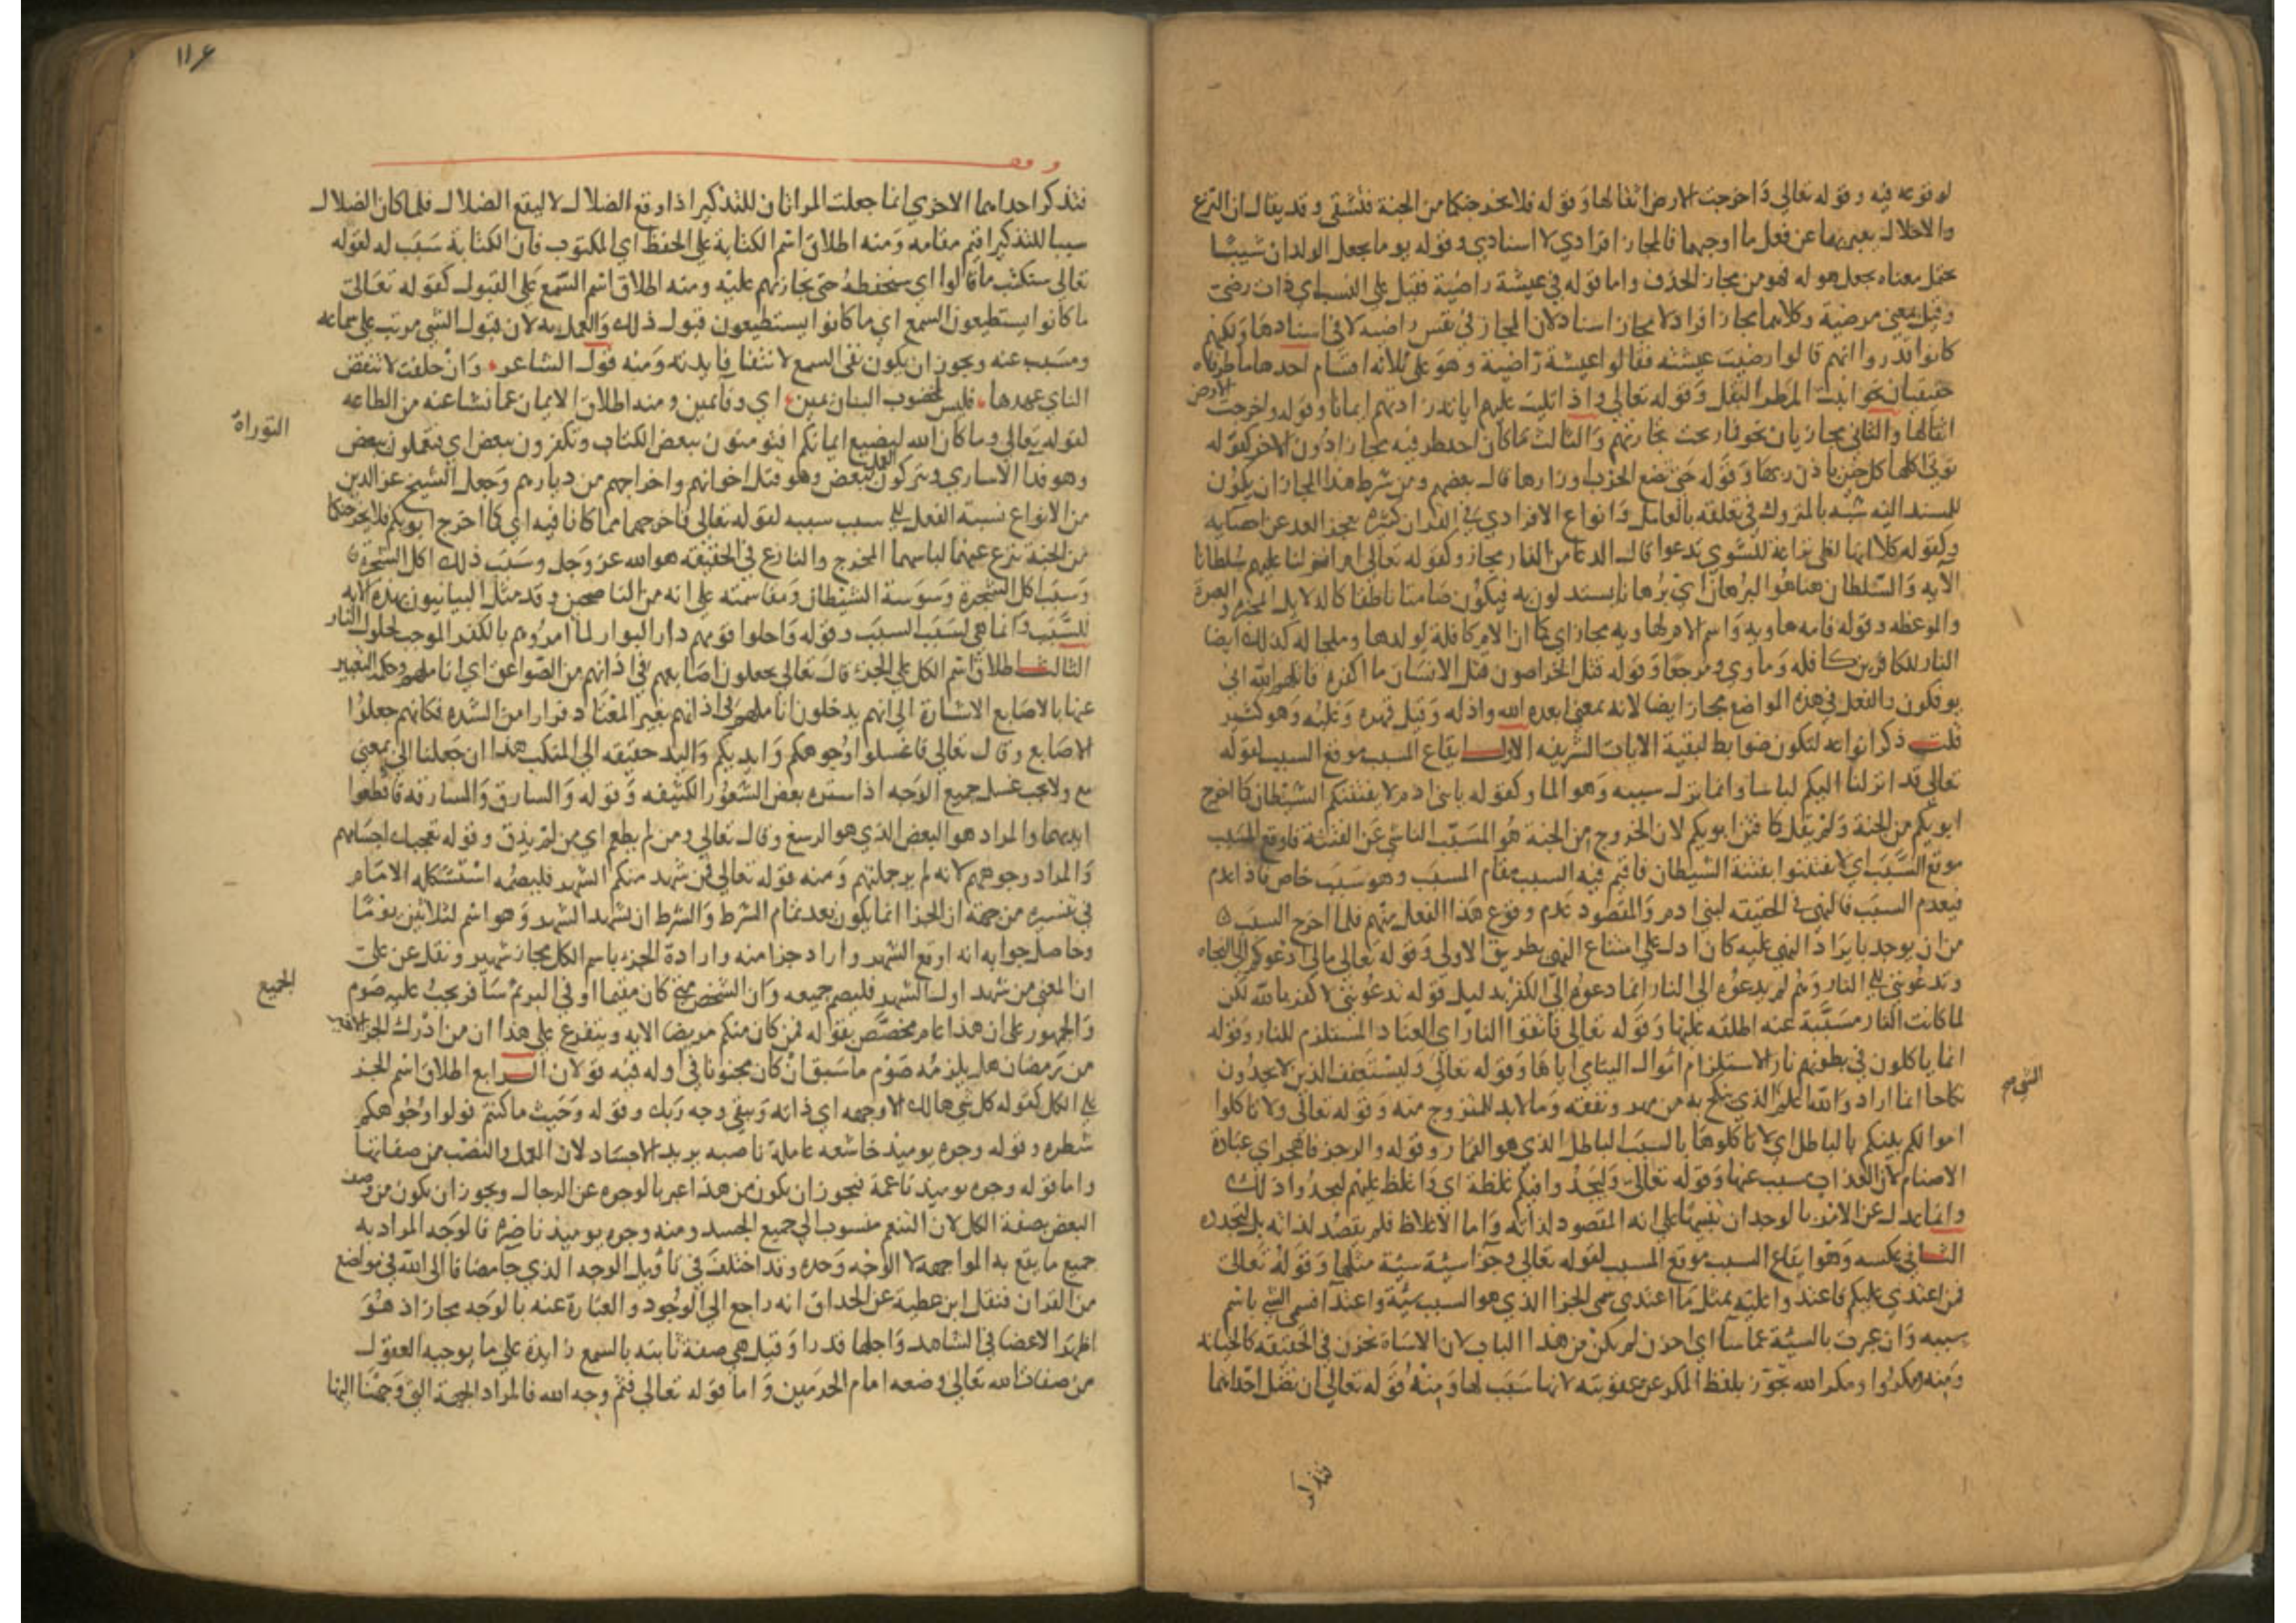 لوقوعه فيه وقوله تعالى واخرجت الارض اثقالها وقوله فلا يخرجنكما من الجنة فتشقى وقد يقال ان النزع
والاحلال يعبر بهما عن فعل ما اوجبهما فالمجاز افرادي لا اسنادي وقوله يوما يجعل الولدان شيبا
يحتمل معناه يجعل هوله فهو من مجاز الحذف واما قوله في عيشة راضية فقيل على النسب اي ذات رضى
وقيل بمعنى مرضية وكلاهما مجاز افراد لا مجاز اسناد لان المجاز في نفس راضية لا في اسنادها ولكنهم
كانوا قدروا انهم قالوا رضيت عيشته فقالوا عيشة راضية وهو على ثلاثة اقسام احدها ما طرفاه
حقيقيان نحو انبت المطر البقل وقوله تعالى واذا تليت عليهم اياته زادتهم ايمانا وقوله واخرجت الارض
اثقالها والثاني مجازيان نحو فما ربحت تجارتهم والثالث ما كان احد طرفيه مجازا دون الاخر كقوله
توتي اكلها كل حين باذن ربها وقوله حتى تضع الحرب اوزارها قال بعضهم ومن شرط هذا المجاز ان يكون
للمسند اليه شبه بالمتروك في تعلقه بالعامل وانواع الافرادي في القران كثيره يعجز العد عن احصايه
وكقوله كلا انها لظى نزاعة للشوى تدعوا قال الدعا من النار مجاز وكقوله تعالى ام انزلنا عليهم سلطانا
الايه والسلطان هنا هو البرهان اي برهانا يستدلون به فيكون صامتا ناطقا كالدلايل المخبرة والعبرة
والموعظه وقوله فامه هاويه واسم الام لهاويه مجاز اي كما ان الام كافلة لولدها وملجا له كذلك ايضا
النار للكافرين كافله وماوى ومرجعا وقوله قتل الخراصون قتل الانسان ما اكفره قاتلهم الله انى
يوفكون والفعل في هذه المواضع مجاز ايضا لانه بمعنى ابعده الله واذله وقيل قهره وغلبه وهو كثير
قلت ذكر انواعه لتكون ضوابط لبقية الايات الشريفه الاول ايقاع المسبب موقع السبب كقوله
تعالى قد انزلنا اليكم لباسا وانما نزل سببه وهو الما وكقوله يا بني ادم لا يفتننكم الشيطان كما اخرج
ابويكم من الجنة ولم يقل كما فتن ابويكم لان الخروج من الجنة هو المسبب الناشي عن الفتنة فاوقع المسبب
موقع السبب اي لا تفتتنوا بفتنة الشيطان فاقيم فيه السبب مقام المسبب وهو سبب خاص فاذا عدم
فيعدم السبب فالنهي في الحقيقه لبني ادم والمقصود عدم وقوع هذا الفعل منهم فلما اخرج السبب
من ان يوجد بايراد النهي عليه كان ادل على امتناع النهي بطريق الاولى وقوله تعالى ما لي ادعوكم الى النجاه
وتدعونني الى النار وهم لم يدعوه الى النار انما دعوه الى الكفر بدليل قوله تدعونني لاكفر بالله لكن
لما كانت النار مسببة عنه اطلقه عليها وقوله تعالى فاتقوا النار اي العناد المستلزم للنار وقوله
انما ياكلون في بطونهم نارا لاستلزام اموال اليتامى اياها وقوله تعالى وليستعفف الذين لا يجدون
نكاحا انما اراد والله اعلم الذي ينكح به من مهر ونفقه وما لا بد للمتزوج منه وقوله تعالى ولا تاكلوا
اموالكم بينكم بالباطل اي لا تاكلوها بالسبب الباطل الذي هو القمار وقوله والرجز فاهجر اي عبادة
الاصنام لان العذاب مسبب عنها وقوله تعالى وليجدوا فيكم غلظة اي واغلظ عليهم ليجدوا ذلك
وانما عدل عن الامر بالوجدان تنبيها على انه المقصود لذاته واما الاغلاظ فلم يقصد لذاته بل لتجدوه
الثاني عكسه وهو ايقاع السبب موقع المسبب كقوله تعالى وجزا سيئة سيئة مثلها وقوله تعالى
فمن اعتدى عليكم فاعتدوا عليه بمثل ما اعتدى سمى الجزا الذي هو السبب سيئة واعتدا فسمى الشي باسم
سببه وان عبرت بالسيئة عما سا اي احزن لم يكن من هذا الباب لان الاساة تحزن في الحقيقه كالجنايه
ومنه ومكروا ومكر الله تجوز بلفظ المكر عن عقوبته لانها سبب لها ومنه قوله تعالى ان تضل احداهما
الشي صح
فتذكر
١١٦
وقف
فتذكر احداهما الاخرى انما جعلت المراتان للتذكير اذا وقع الضلال لا ليقع الضلال فلما كان الضلال
سببا للتذكير اقيم مقامه ومنه اطلاق اسم الكتابة على الحفظ اي المكتوب فان الكتابة سبب له لقوله
تعالى سنكتب ما قالوا اي سنحفظه حتى نجازيهم عليه ومنه اطلاق اسم السمع على القبول كقوله تعالى
ما كانوا يستطيعون السمع اي ما كانوا يستطيعون قبول ذلك والعمل به لان قبول الشي مرتب على سماعه
ومسبب عنه ويجوز ان يكون نفى السمع لانتفا فايدته ومنه قول الشاعر وان حلفت لا تنقض
الناي عهدها فليس لمخضوب البنان يمين اي وفا يمين ومنه اطلاق الايمان عما نشا عنه من الطاعه
لقوله تعالى وما كان الله ليضيع ايمانكم افتومنون ببعض الكتاب وتكفرون ببعض اي فتعملون ببعض
التوراة
وهو فدا الاسارى وتتركون العمل ببعض وهو قتل اخوانهم واخراجهم من ديارهم وجعل الشيخ عز الدين
من الانواع نسبة الفعل الى سبب سببه لقوله تعالى فاخرجهما مما كانا فيه اي كما اخرج ابويكم فلا يخرجنكما
من الجنة ينزع عنهما لباسهما المخرج والنازع في الحقيقه هو الله عز وجل وسبب ذلك اكل الشجرة
وسبب اكل الشجرة وسوسة الشيطان ومقاسمته على انه من الناصحين وقد مثل البيانيون بهذه الايه
للسبب وانما هي لسبب السبب وقوله واحلوا قومهم دار البوار لما امروهم بالكفر الموجب لحلول النار
الثالث اطلاق اسم الكل على الجزء قال تعالى يجعلون اصابعهم في اذانهم من الصواعق اي اناملهم وحكمة التعبير
عنها بالاصابع الاشارة الى انهم يدخلون اناملهم في اذانهم بغير المعتاد فرارا من الشده فكانهم جعلوا
الاصابع وقال تعالى فاغسلوا وجوهكم وايديكم واليد حقيقه الى المنكب هذا ان جعلنا الى بمعنى
مع ولا يجب غسل جميع الوجه اذا ستره بعض الشعور الكثيفه وقوله والسارق والسارقه فاقطعوا
ايديهما والمراد هو البعض الذي هو الرسغ وقال تعالى ومن لم يطعمه اي من لم يذق وقوله تعجبك اجسامهم
والمراد وجوههم لانه لم ير جملتهم ومنه قوله تعالى فمن شهد منكم الشهر فليصمه استشكله الامام
في تفسيره من جهة ان الجزا انما يكون بعد تمام الشرط والشرط ان يشهد الشهر وهو اسم لثلاثين يوما
وحاصل جوابه انه اوقع الشهر واراد جزا منه وارادة الجزء باسم الكل مجاز شهير ونقل عن علي
ان المعنى من شهد اول الشهر فليصم جميعه وان الشخص متى كان مقيما او في البر ثم سافر يجب عليه صوم
الجميع
والجمهور على ان هذا عام مخصص بقوله فمن كان منكم مريضا الايه ويتفرع على هذا ان من ادرك الجزء الاخير
من رمضان هل يلزمه صوم ما سبق ان كان مجنونا في اوله فيه قولان الرابع اطلاق اسم الجزء
على الكل كقوله كل شي هالك الا وجهه اي ذاته ويبقى وجه ربك وقوله وحيث ما كنتم فولوا وجوهكم
شطره وقوله وجوه يوميذ خاشعه عاملة ناصبه يريد الاجساد لان العمل والنصب من صفاتها
واما قوله وجوه يوميذ ناعمة فيجوز ان يكون من هذا عبر بالوجوه عن الرجال ويجوز ان يكون من وصف
البعض بصفة الكل لان التنعم منسوب الى جميع الجسد ومنه وجوه يوميذ ناضره فالوجه المراد به
جميع ما يقع به المواجهه لا الوجه وحده وقد اختلف في تاويل الوجه الذي جا مضافا الى الله في مواضع
من القران فنقل ابن عطية عن الحذاق انه راجع الى الوجود والعبارة عنه بالوجه مجاز اذ هو
اظهر الاعضا في الشاهد واجلها قدرا وقيل هي صفة ثابته بالسمع زايدة على ما يوجبه العقول
من صفات الله تعالى وضعفه امام الحرمين واما قوله تعالى فثم وجه الله فالمراد الجهة التي وجهنا اليها